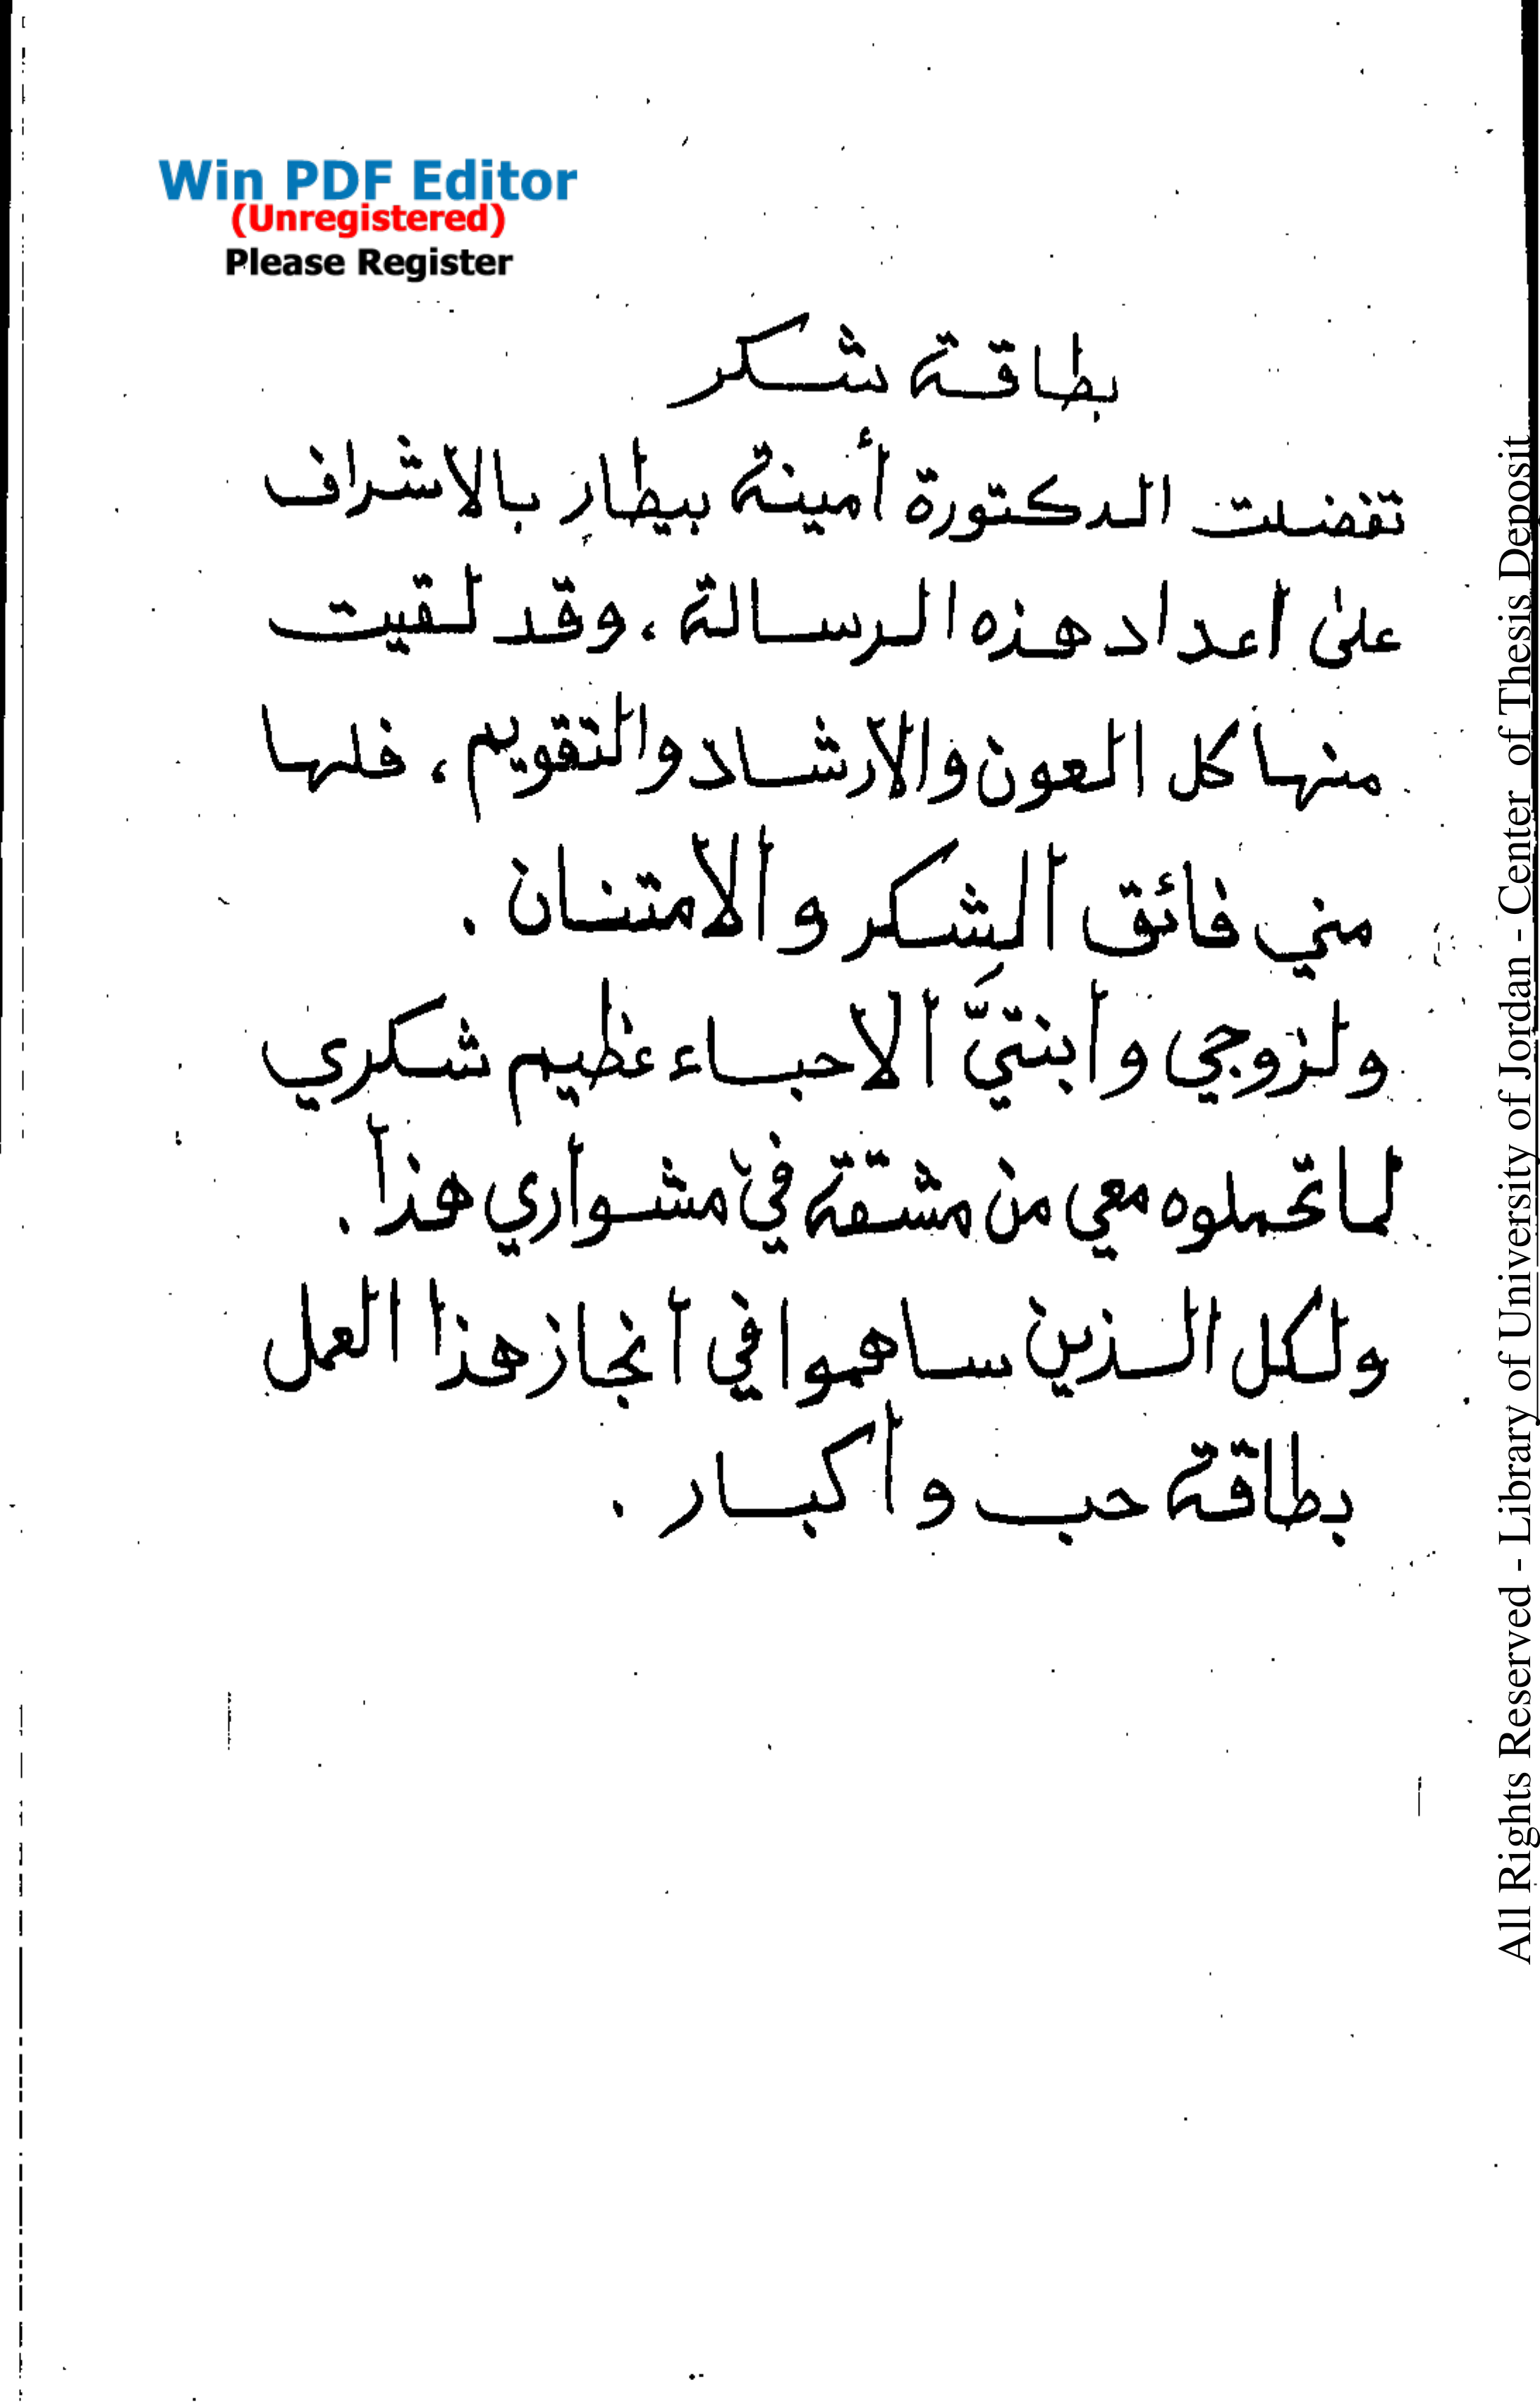 Win PDF Editor
(Unregistered)
Please Register
بطاقة شكر
تفضلت الدكتورة أمينة بيطار بالاشراف
على اعداد هذه الرسالة ، وقد لقيت
منها كل العون والارشاد والتقويم ، فلها
مني فائق الشكر والامتنان .
ولزوجي وابنتيَّ الاحباء عظيم شكري
لما تحملوه معي من مشقة في مشواري هذا .
ولكل الذين ساهموا في انجاز هذا العمل
بطاقة حب واكبار .
All Rights Reserved - Library of University of Jordan - Center of Thesis Deposit